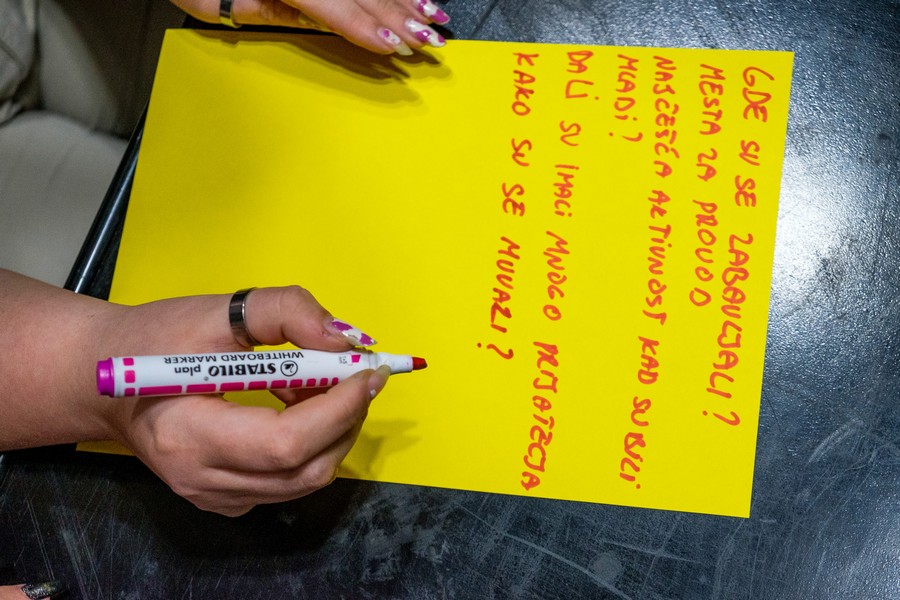 GDE SU SE ZABAVLJALI?
MESTA ZA PROVOD
NAJČEŠĆA AKTIVNOST KAD SU BILI
MLADI?
DA LI SU IMALI MNOGO PRIJATELJA
KAKO SU SE MUVALI?
STABILO plan
WHITEBOARD MARKER